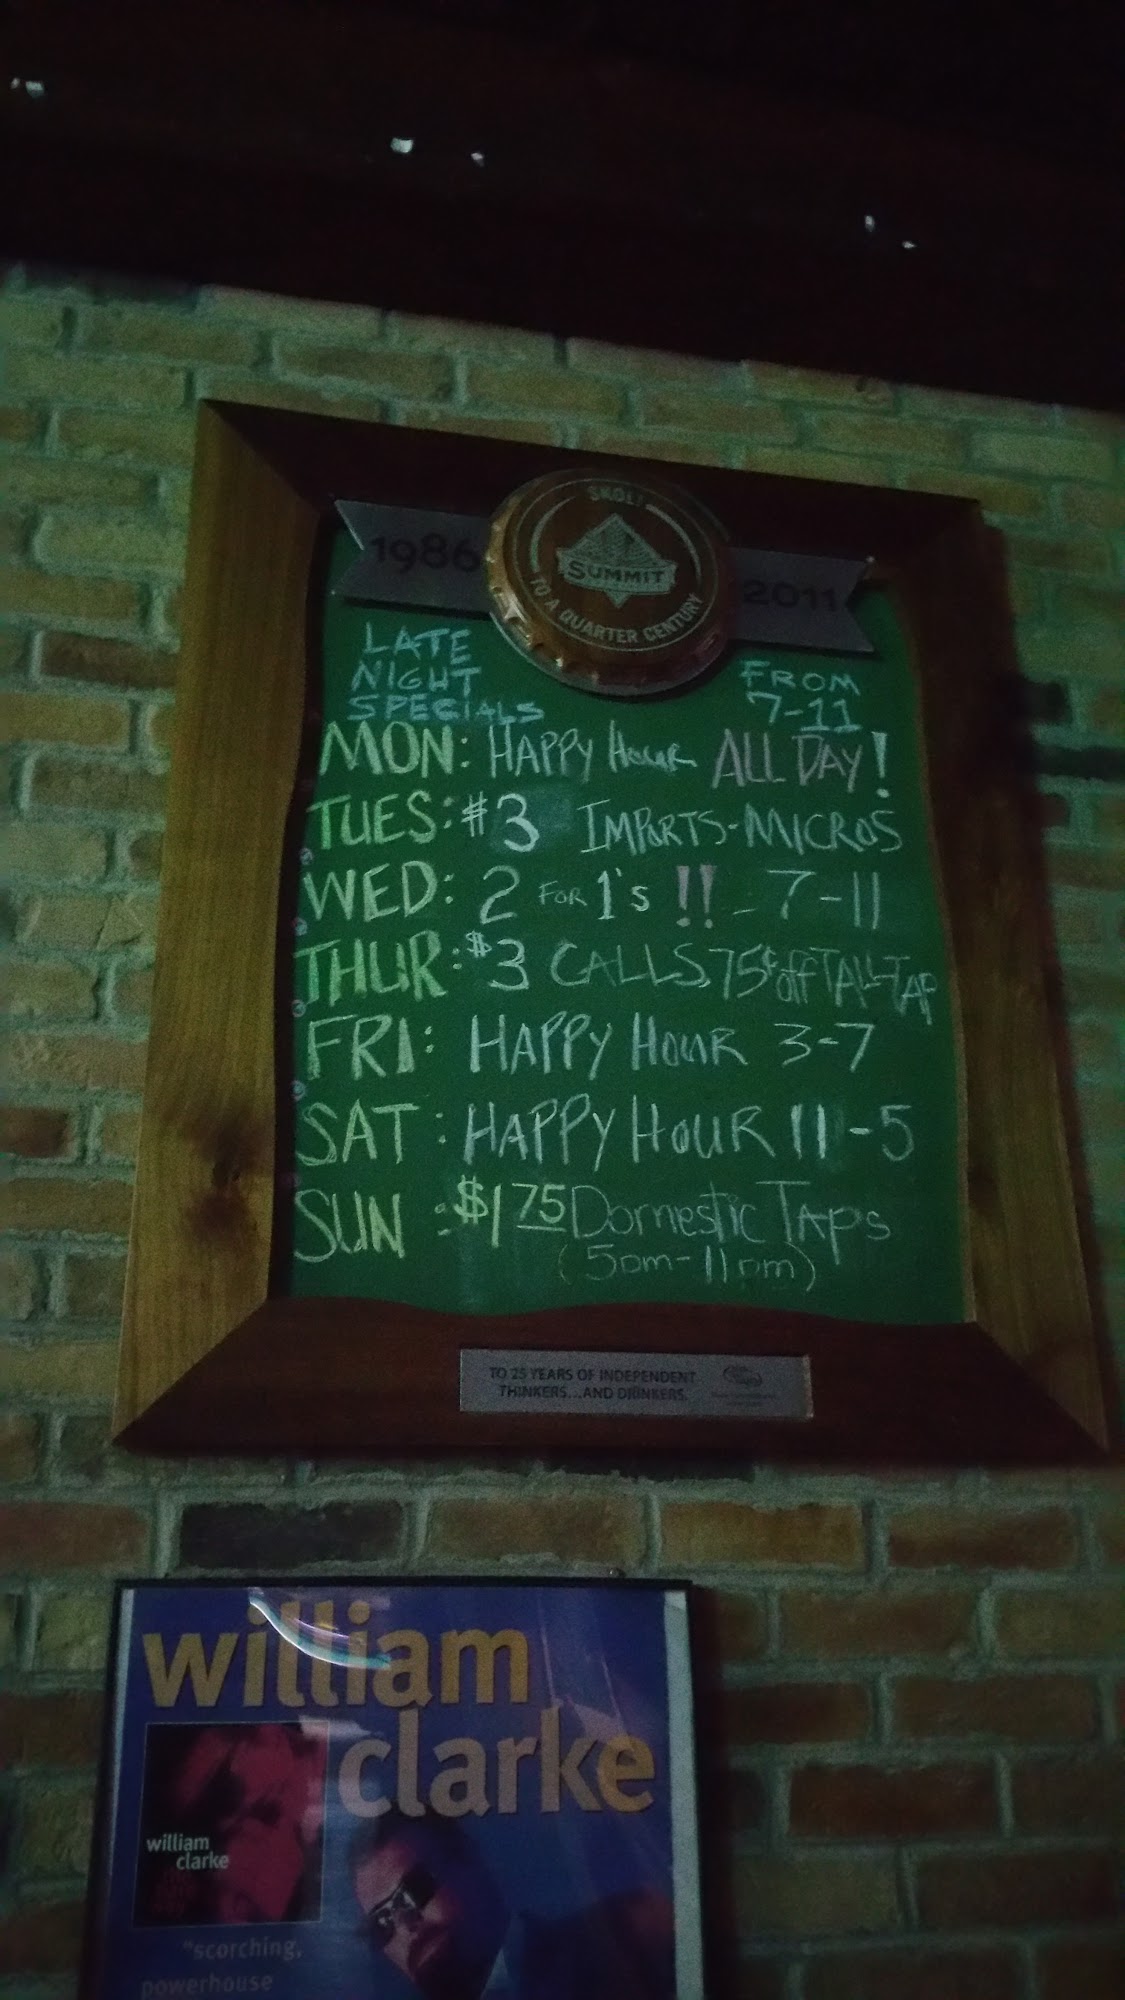 SKOL!
1986 SUMMIT 2011
TO A QUARTER CENTURY
LATE
NIGHT
SPECIALS
FROM
7-11
MON: HAPPY HOUR ALL DAY!
TUES: #3 IMPORTS-MICROS
WED: 2 FOR 1's !! - 7-11
THUR: $3 CALLS, 75¢ off TALL TAP
FRI: HAPPY HOUR 3-7
SAT: HAPPY HOUR 11-5
SUN: $1 75 Domestic TAPs
(5pm-11pm)
TO 25 YEARS OF INDEPENDENT
THINKERS...AND DRINKERS.
william
clarke
william
clarke
"scorching,
powerhouse